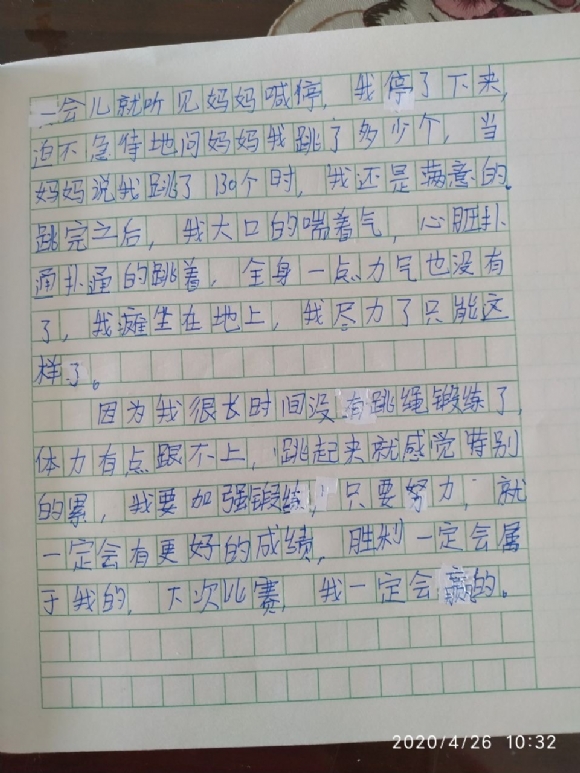 一会儿就听见妈妈喊停，我停了下来，
迫不急待地问妈妈我跳了多少个，当
妈妈说我跳了130个时，我还是满意的。
跳完之后，我大口的喘着气，心脏扑
通扑通的跳着，全身一点力气也没有
了，我瘫坐在地上，我尽力了只能这
样了。
因为我很长时间没有跳绳锻练了，
体力有点跟不上，跳起来就感觉特别
的累，我要加强锻练，只要努力，就
一定会有更好的成绩，胜利一定会属
于我的，下次比赛，我一定会赢的。
2020/4/26 10:32